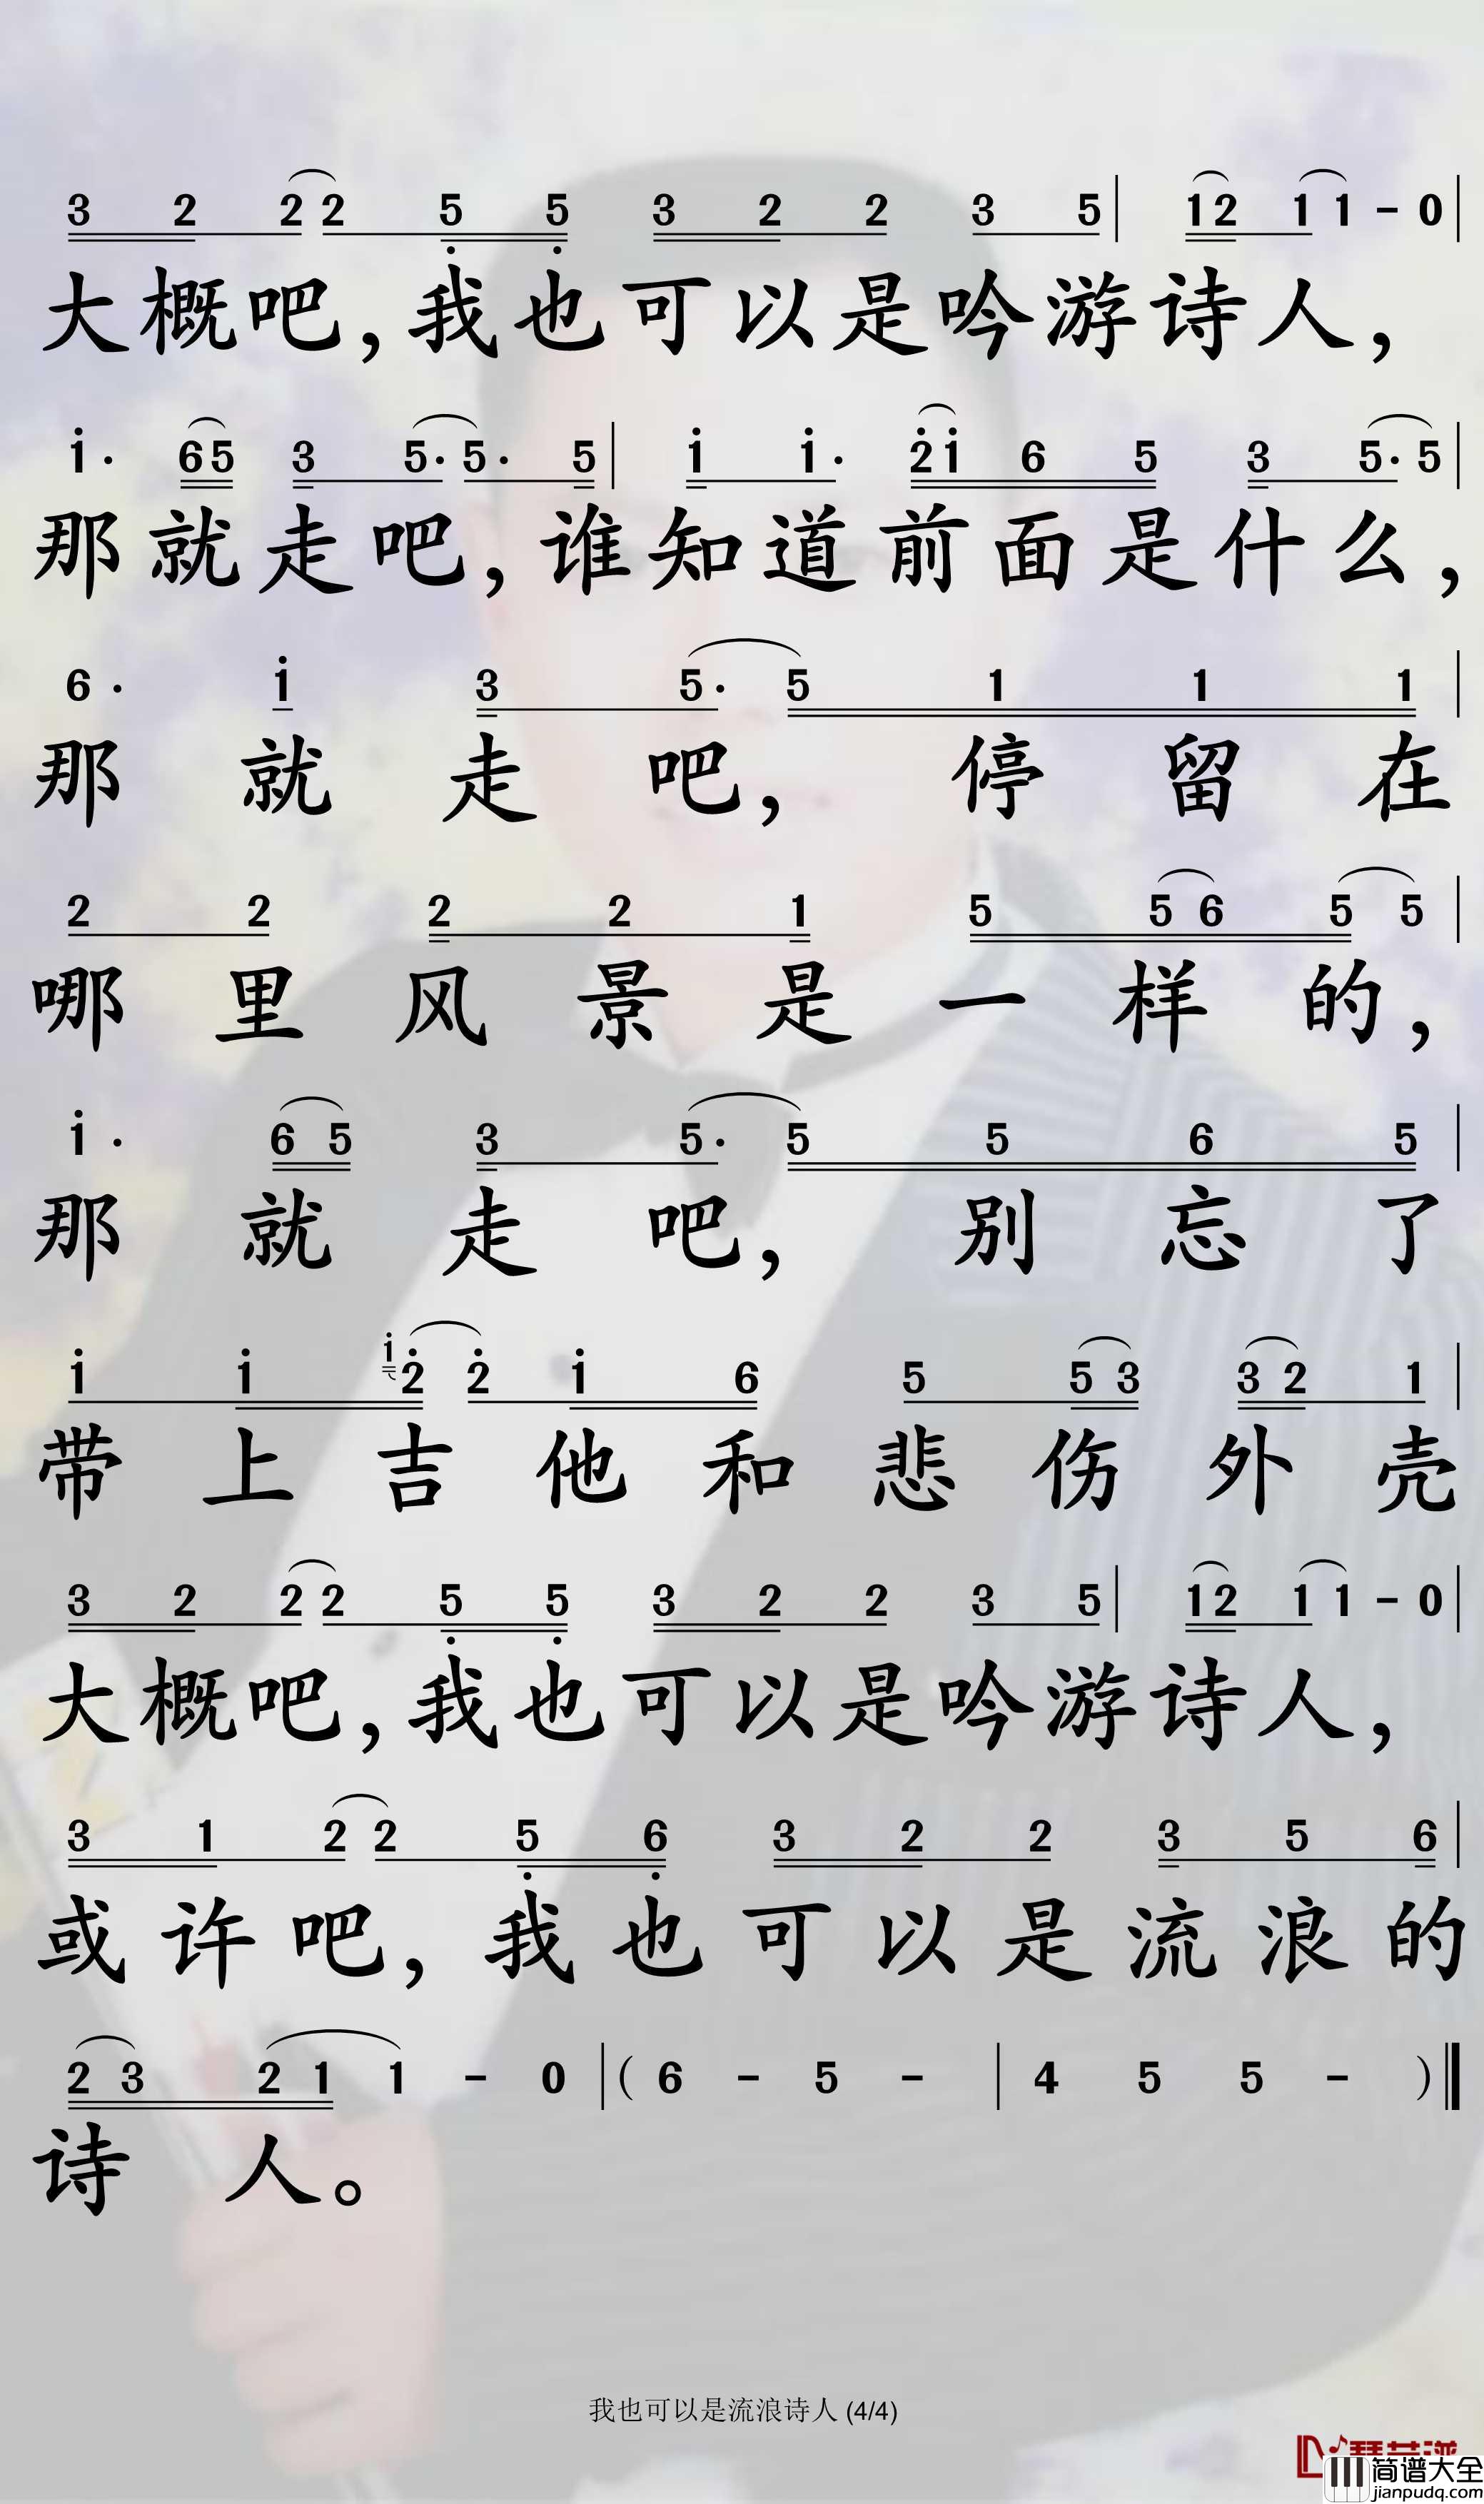 3 2 2 2 5 5 3 2 2 3 5 | 1 2 1 1 - 0 |
大概吧，我也可以是吟游诗人，
i· 6 5 3 5· 5· 5 | i i· 2̇ i 6 5 3 5· 5 |
那就走吧，谁知道前面是什么，
6· i 3 5· 5 1 1 1 |
那就走吧，停留在
2 2 2 2 1 5 5 6 5 5 |
哪里风景是一样的，
i· 6 5 3 5· 5 5 6 5 |
那就走吧，别忘了
i i i 2̇ 2̇ i 6 5 5 3 3 2 1 |
带上吉他和悲伤外壳
3 2 2 2 5 5 3 2 2 3 5 | 1 2 1 1 - 0 |
大概吧，我也可以是吟游诗人，
3 1 2 2 5 6 3 2 2 3 5 6 |
或许吧，我也可以是流浪的
2 3 2 1 1 - 0 | ( 6 - 5 - | 4 5 5 - ) ‖
诗人。
我也可以是流浪诗人 (4/4)
简谱大全
jianpudq.com